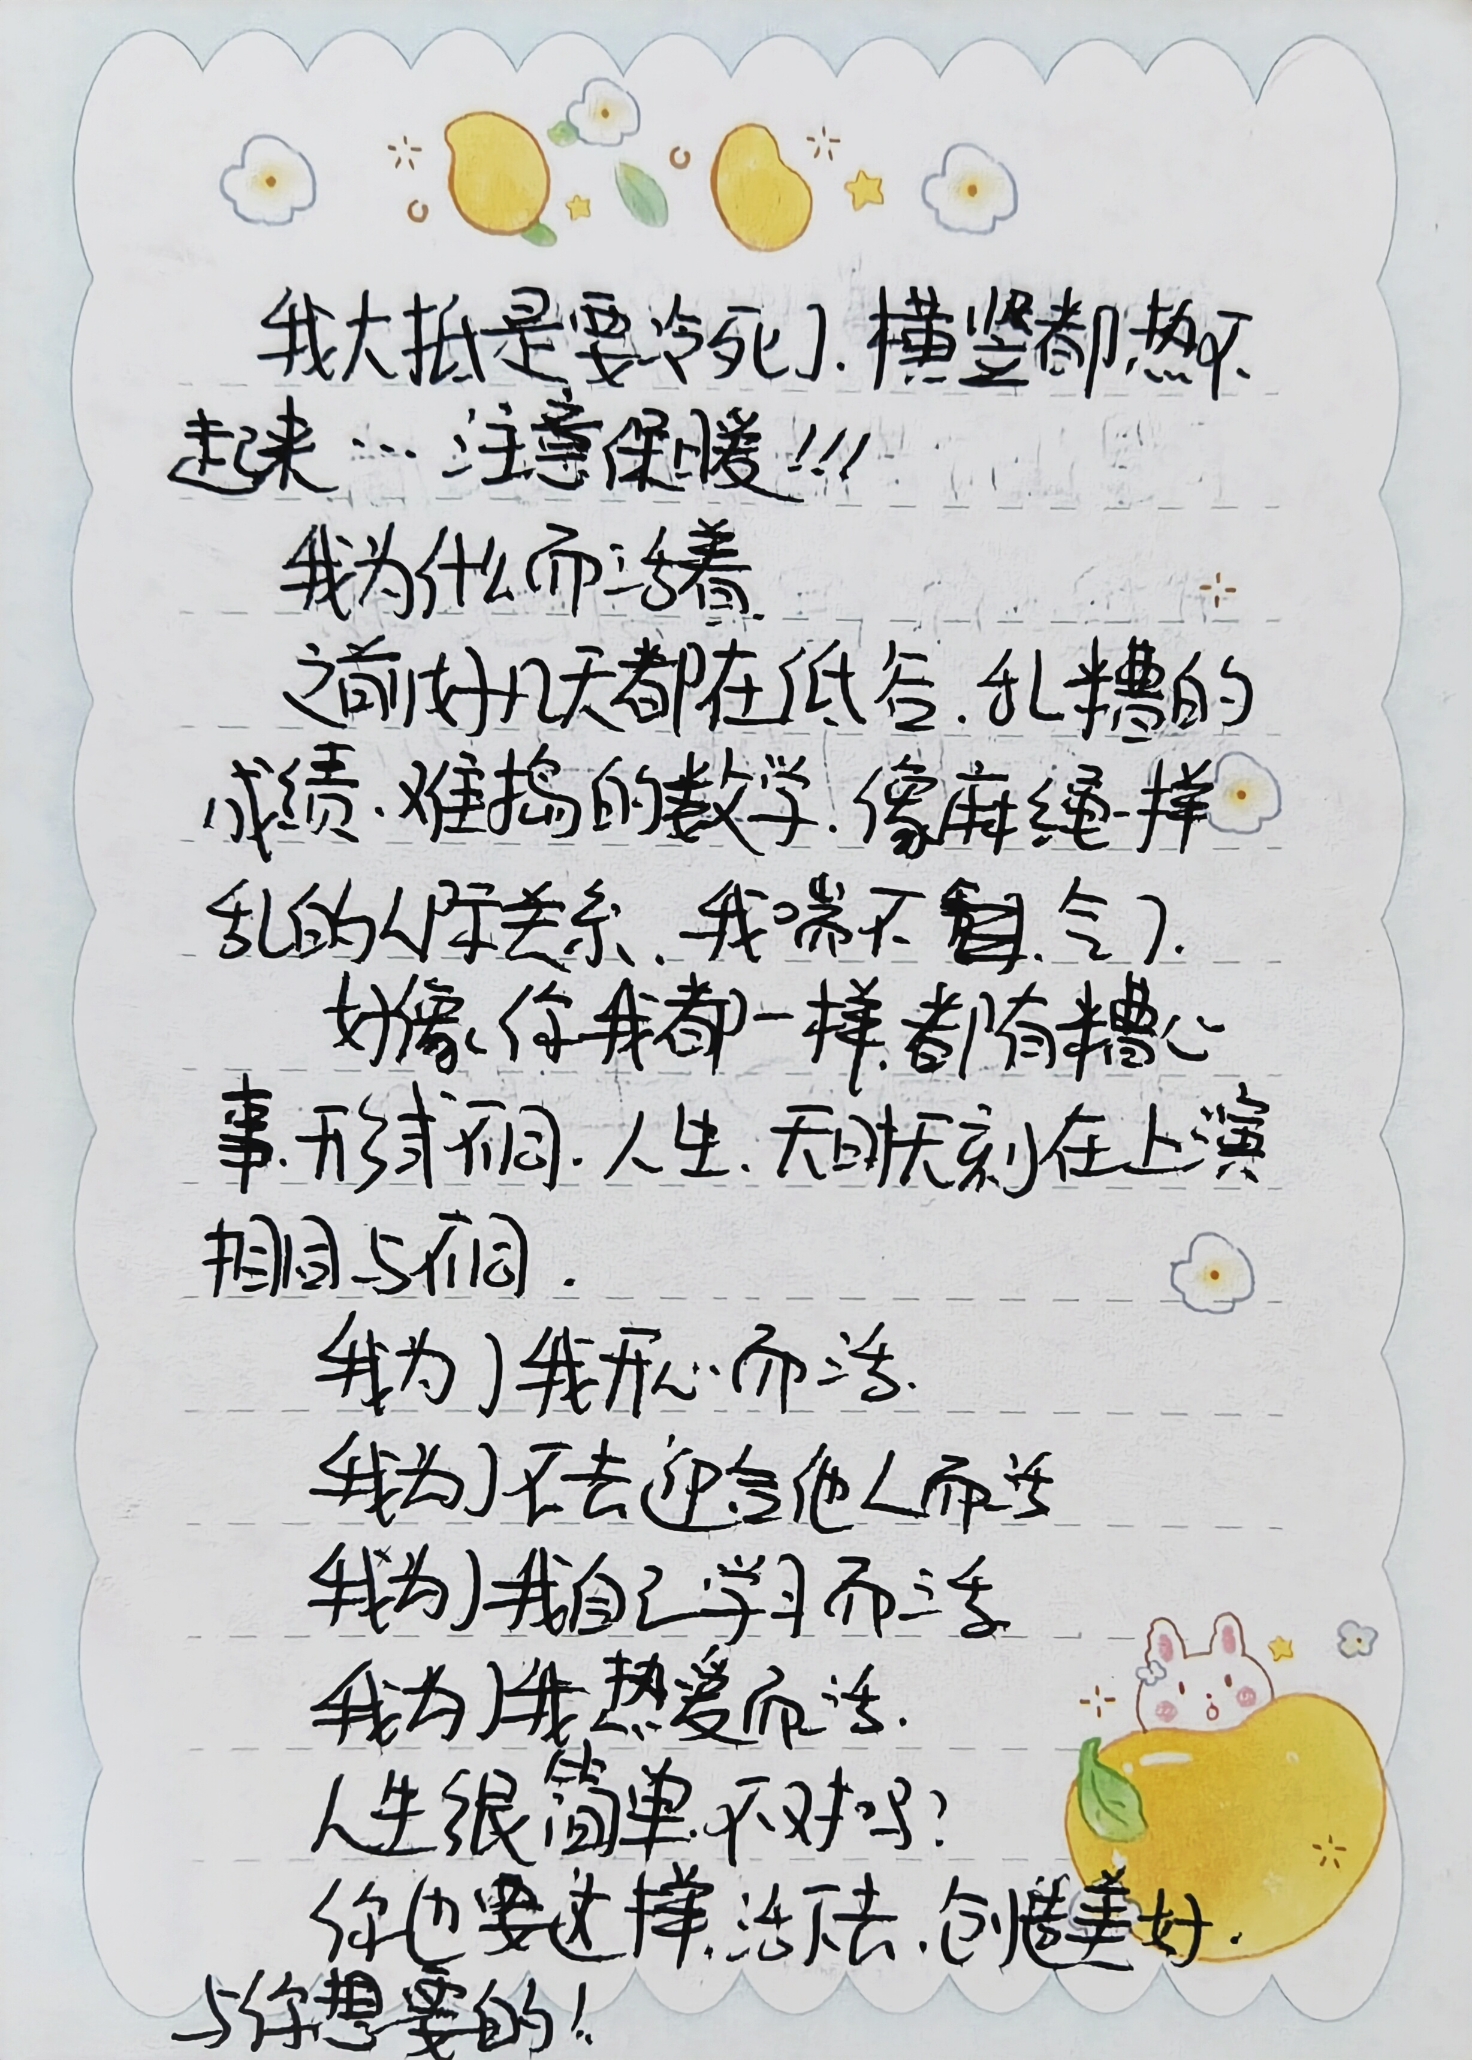 我大抵是要冷死了.横竖都热不
起来…注意保暖!!!
我为什么而活着
之前好几天都在低谷.乱糟的
成绩.难搞的数学.像麻绳一样
乱的人际关系.我喘不 气了.
好像,你我都一样.都有糟心
事.形式不同.人生.无时无刻在上演
相同与不同.
我为了我开心而活.
我为了不去迎合他人而活
我为了我自己学习而活
我为了我热爱而活.
人生很简单.不对吗?
你也要这样.活下去.创造美好.
与你想要的!